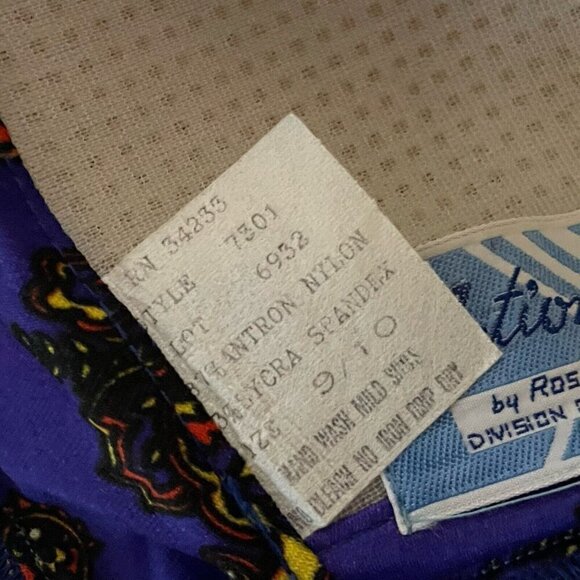 RN 34233
STYLE 7301
LOT 6932
ANTRON NYLON
LYCRA SPANDEX
SIZE 9/10
HAND WASH MILD SUDS
NO BLEACH NO IRON DRIP DRY
by ROS
DIVISION